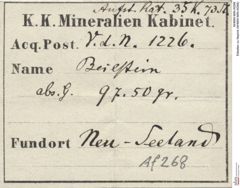 Aufst. Kat. 35 K. 73
K. K. Mineralien Kabinet.
Acq. Post. V. d. N. 1226.
Name Beilstein
abs. G. 97.50 gr.
Fundort Neu-Seeland
Af 268